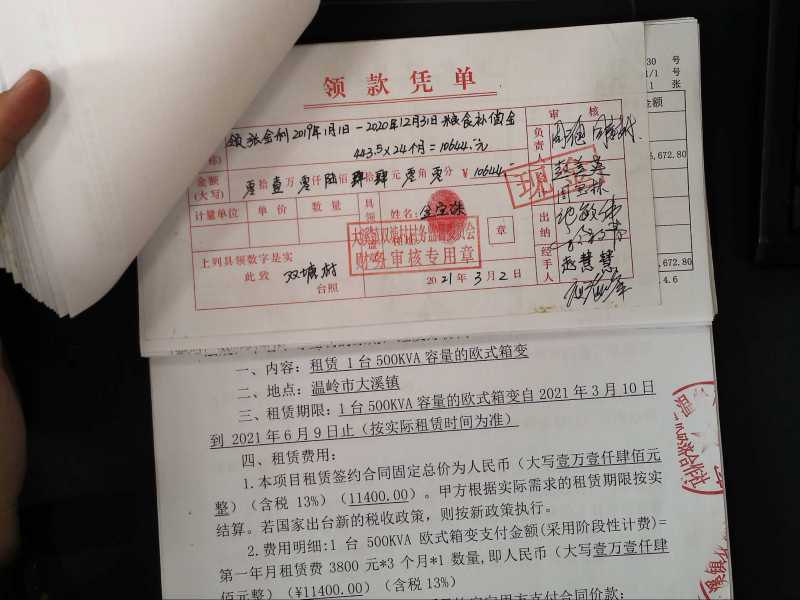 领款凭单
领 张金刚 2019年1月1日-2020年12月31日粮食补偿金
443.5×24个月=10644.元
金额
(大写)
零拾壹万零仟陆佰肆拾肆元零角零分 ¥10644.-
计量单位 单价 数量 姓名:
章
大溪镇双塘村村务监督委员会
财务审核专用章
上列具领数字是实
此致 双塘村
台照
2021年3月2日
审核
负责人
出纳
经手人
30 号
1/1 号
1 张
金额
5,672.80
,672.80
4.6
一、内容:租赁 1台500KVA容量的欧式箱变
二、地点:温岭市大溪镇
三、租赁期限:1台500KVA容量的欧式箱变自2021年3月10日
到 2021年6月9日止(按实际租赁时间为准)
四、租赁费用:
1.本项目租赁签约合同固定总价为人民币(大写壹万壹仟肆佰元
整)(含税 13%)(11400.00)。甲方根据实际需求的租赁期限按实
结算。若国家出台新的税收政策,则按新政策执行。
2.费用明细:1台 500KVA 欧式箱变支付金额(采用阶段性计费)=
第一年月租赁费 3800 元*3个月*1数量,即人民币(大写壹万壹仟肆
佰元整)(¥11400.00)(含税13%)